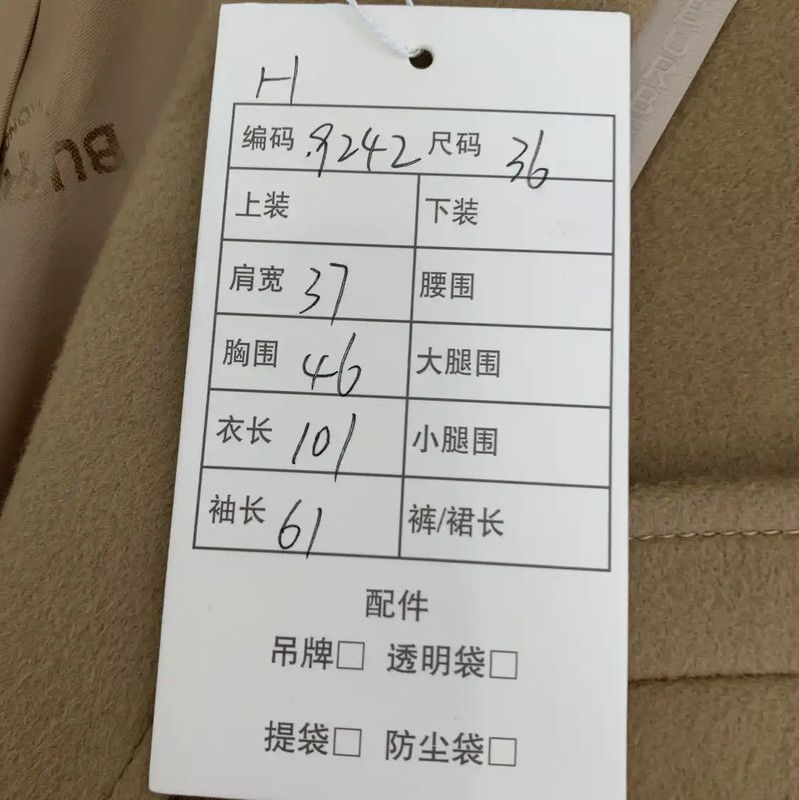 H
编码 9242 尺码 36
上装 下装
肩宽 37 腰围
胸围 46 大腿围
衣长 101 小腿围
袖长 61 裤/裙长
配件
吊牌□ 透明袋□
提袋□ 防尘袋□